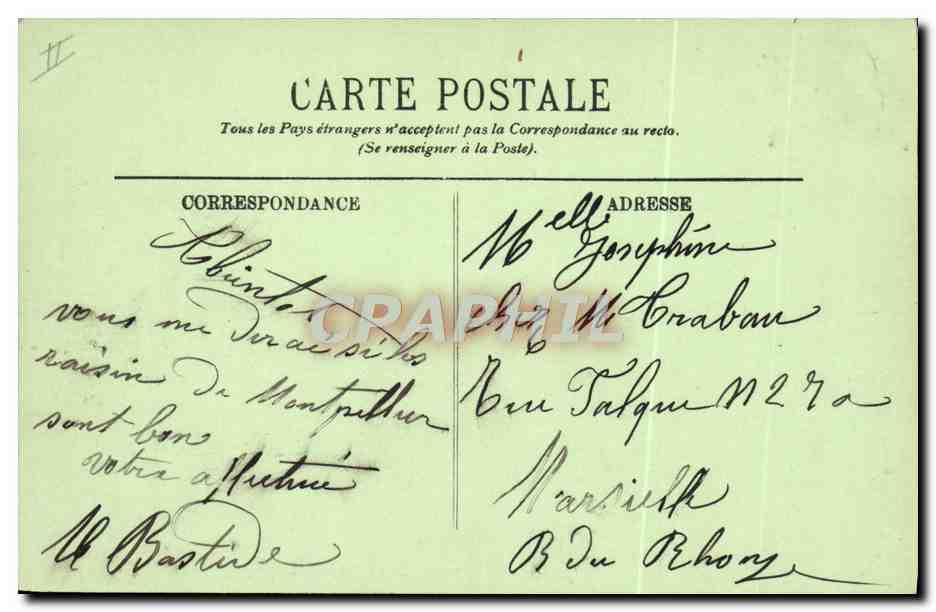 II
CARTE POSTALE
Tous les Pays étrangers n'acceptent pas la Correspondance au recto.
(Se renseigner à la Poste).
CORRESPONDANCE
vous me direz si les
raisin de Montpellier
sont bon
votre affectuné
M Bastide
ADRESSE
Melle Josephine
chez M Trabau
Rue Falque N 27 a
Marseille
B du Rhone
CRAPHIL